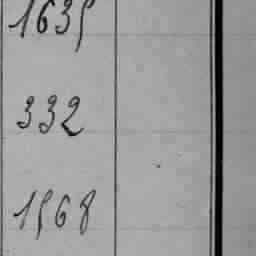 1635
332
1568